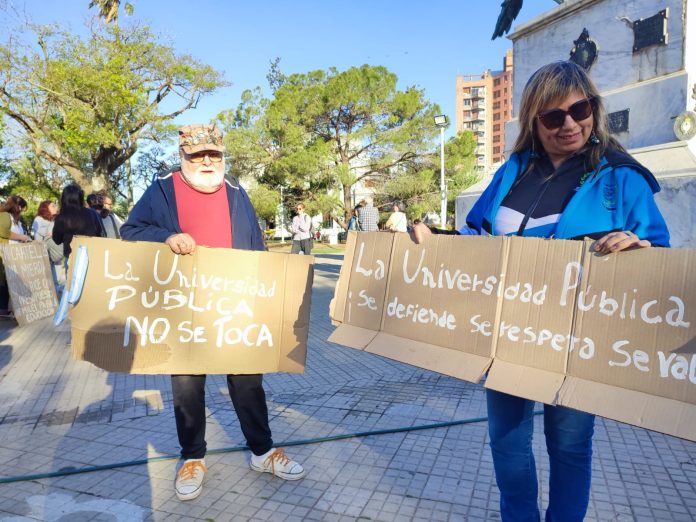 CARTEL
La Universidad
PÚBLICA
NO SE TOCA
La Universidad Pública
¡se defiende se respeta se val